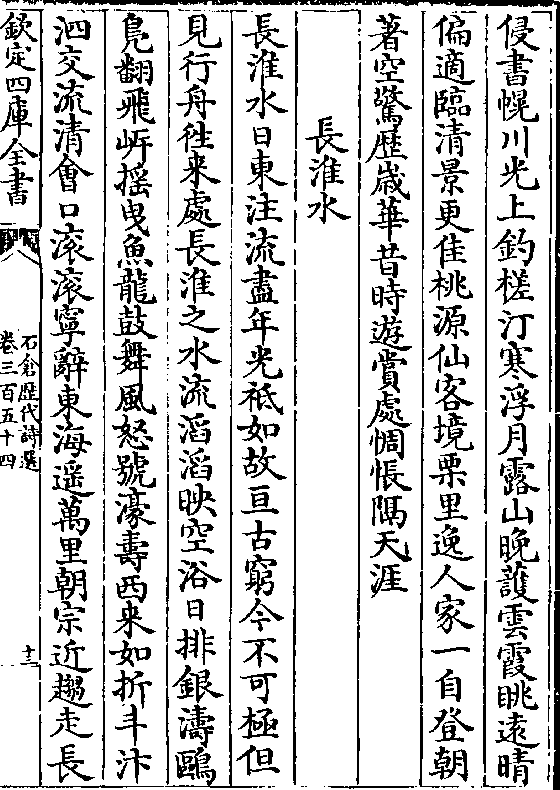 侵書幌川光上釣槎汀寒浮月露山晚護雲霞眺遠晴
偏適臨清景更佳桃源仙客境栗里逸人家一自登朝
著空驚歴歳華昔時遊賞處惆悵隔天涯
長淮水
長淮水日東注流盡年光祗如故亘古窮今不可極但
見行舟徃来處長淮之水流滔滔映空浴日排銀濤鷗
鳬翻飛岍揺曳魚龍鼓舞風怒號濠壽西来如折斗汴
泗交流清會口滚滚寧辭東海遥萬里朝宗近趨走長
欽定四庫全書
石倉歴代詩選
卷三百五十四
十三